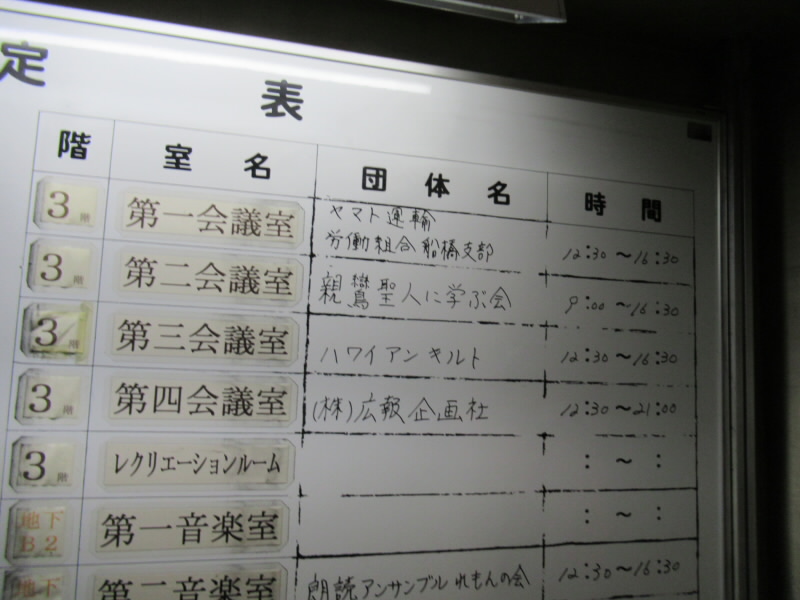 定 表
階 室名 団体名 時間
3階 第一会議室 ヤマト運輸
労働組合船橋支部 12:30～16:30
3階 第二会議室 親鸞聖人に学ぶ会 9:00～16:30
3階 第三会議室 ハワイアンキルト 12:30～16:30
3階 第四会議室 (株)広報企画社 12:30～21:00
3階 レクリエーションルーム : ～ :
地下B2 第一音楽室 : ～ :
地下 第二音楽室 朗読アンサンブルれもんの会 12:30～16:30